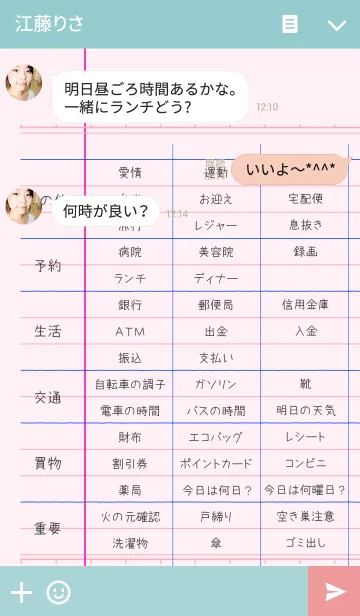 江藤りさ
明日昼ごろ時間あるかな。
一緒にランチどう?
12:10
愛情 運動
いいよ〜*^^*
お迎え 宅配便
何時が良い?
12:14
旅行 レジャー 息抜き
予約
病院 美容院 録画
ランチ ディナー
生活
銀行 郵便局 信用金庫
ATM 出金 入金
振込 支払い
交通
自転車の調子 ガソリン 靴
電車の時間 バスの時間 明日の天気
買物
財布 エコバッグ レシート
割引券 ポイントカード コンビニ
薬局 今日は何日? 今日は何曜日?
重要
火の元確認 戸締り 空き巣注意
洗濯物 傘 ゴミ出し